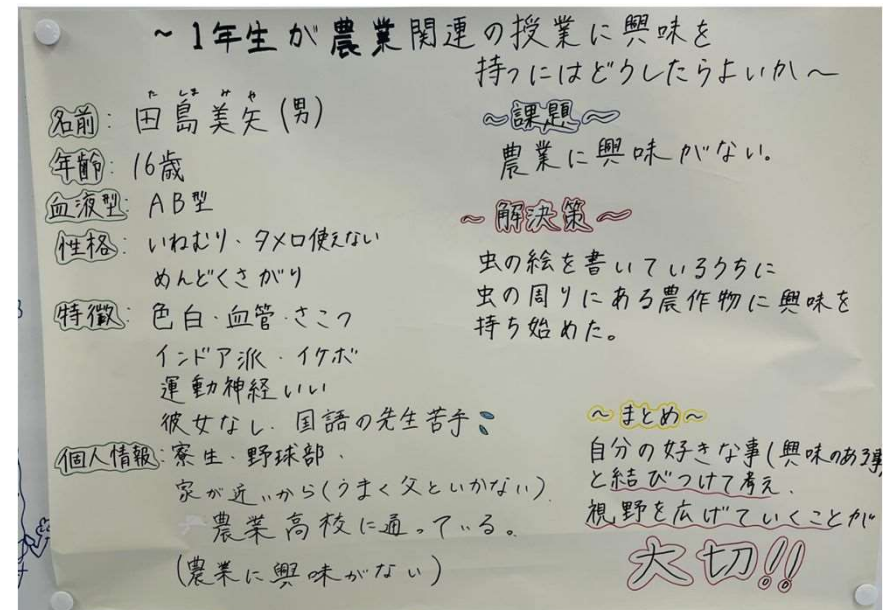 ～1年生が農業関連の授業に興味を
持つにはどうしたらよいか～
たしまみや
名前: 田島美矢(男)
年齢: 16歳
血液型: AB型
性格: いねむり・タメ口使えない
めんどくさがり
特徴: 色白・血管・さこつ
インドア派・イケボ
運動神経いい
彼女なし・国語の先生苦手
個人情報: 寮生・野球部・
家が近いから(うまく父といかない)
農業高校に通っている。
(農業に興味がない)
～課題～
農業に興味がない。
～解決策～
虫の絵を書いているうちに
虫の周りにある農作物に興味を
持ち始めた。
～まとめ～
自分の好きな事(興味のある事
と結びつけて考え、
視野を広げていくことが
大切!!